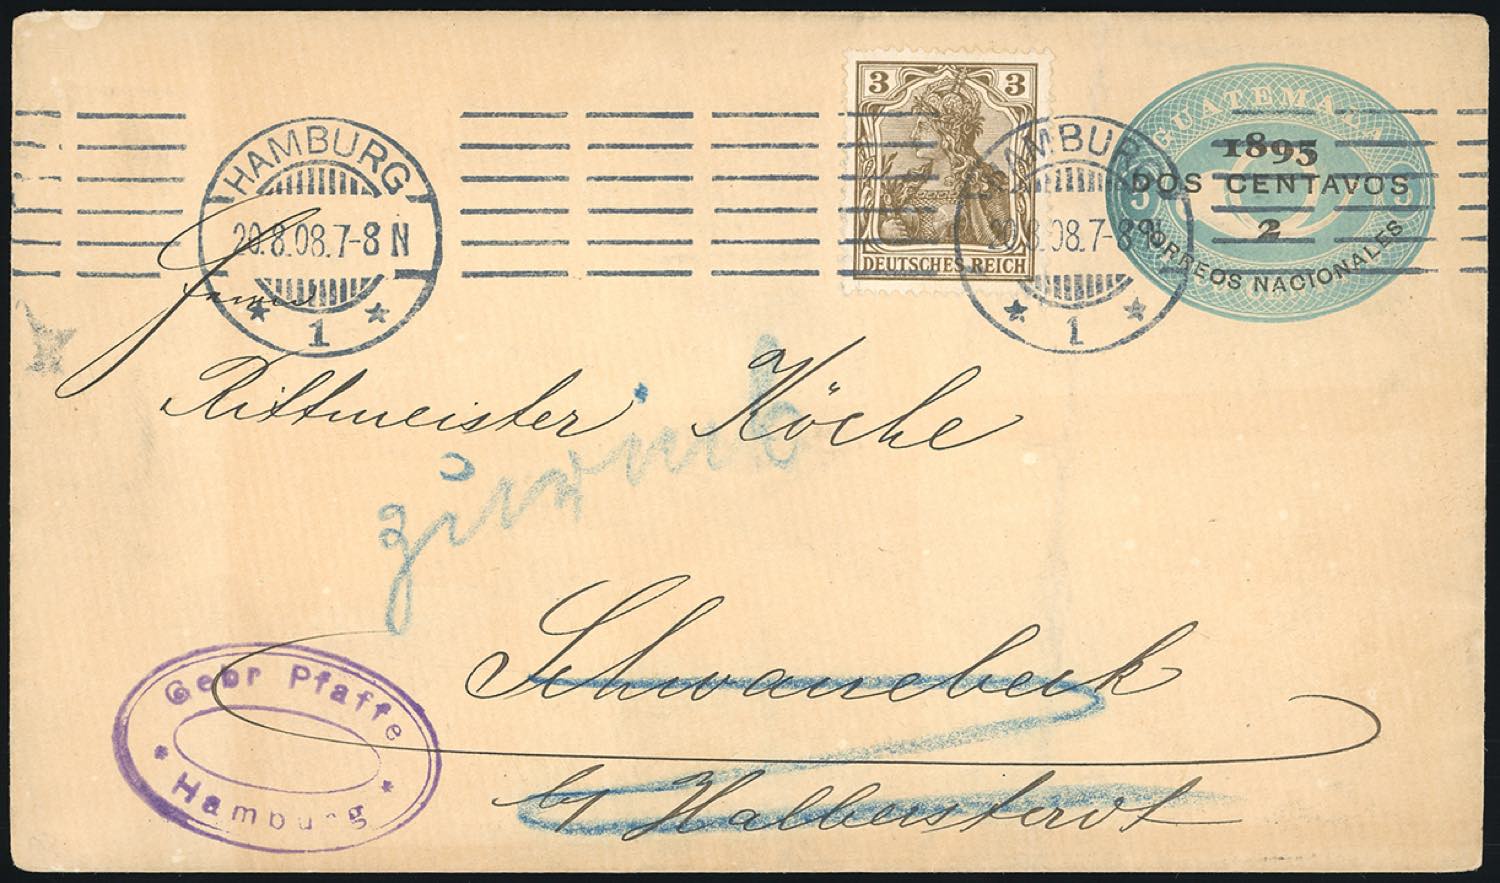 3 3
DEUTSCHES REICH
GUATEMALA
1895
DOS CENTAVOS
2
CORREOS NACIONALES
5 5
HAMBURG
20.8.08.7-8 N
* 1 *
HAMBURG
20.8.08.7-8 N
* 1 *
Herrn
Rittmeister Köche
zurück
Schwanebeck
b/ Halberstadt
Gebr Pfaffe
* Hamburg *